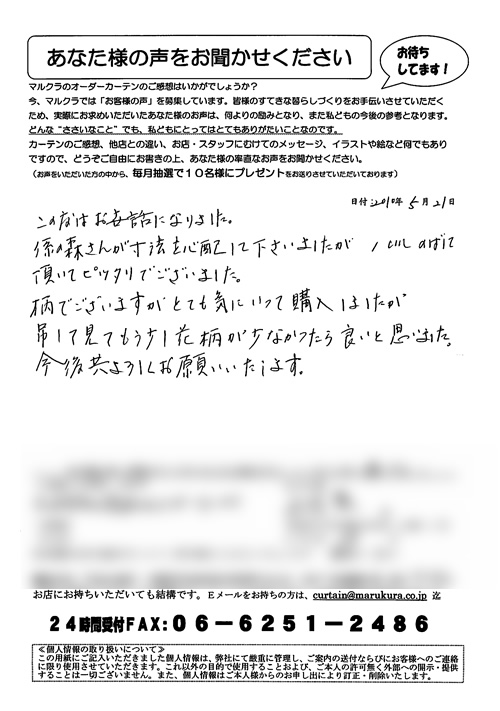 あなた様の声をお聞かせください
お待ち
してます!
マルクラのオーダーカーテンのご感想はいかがでしょうか?
今、マルクラでは「お客様の声」を募集しています。皆様のすてきな暮らしづくりをお手伝いさせていただく
ため、実際にお求めいただいたあなた様のお声は、何よりの励みとなり、また私どもの今後の参考となります。
どんな“ささいなこと”でも、私どもにとってはとてもありがたいことなのです。
カーテンのご感想、他店との違い、お店・スタッフにむけてのメッセージ、イラストや絵など何でもあり
ますので、どうぞご自由にお書きの上、あなた様の率直なお声をお聞かせください。
(お声をいただいた方の中から、毎月抽選で10名様にプレゼントをお送りさせていただいております)
日付 2010年 5月 21日
このたびはお世話になりました。
係の森さんが寸法を心配して下さいましたが
頂いてピッタリでございました。
柄でございますがとても気にいって購入しましたが
吊して見てもう少し花柄が少なかったら良いと思いました。
今後共よろしくお願いいたします。
お店にお持ちいただいても結構です。Eメールをお持ちの方は、curtain@marukura.co.jp 迄
24時間受付FAX:06-6251-2486
≪個人情報の取り扱いについて≫
この用紙にご記入いただきました個人情報は、弊社にて厳重に管理し、ご案内の送付ならびにお客様へのご連絡
に限り使用させていただきます。これ以外の目的で使用することおよび、ご本人の許可無く外部への開示・提供
することは一切ございません。また、個人情報はご本人様からのお申し出により訂正・削除いたします。